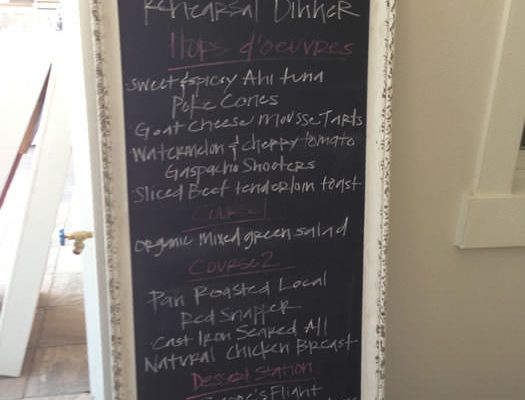 Rehearsal Dinner
Hops d'oeuvres
sweet & spicy Ahi tuna
Poke Cones
Goat cheese mousse Tarts
Watermelon & cherry tomato
Gaspacho Shooters
Sliced Beef tenderloin toast
Course 1
organic mixed green salad
Course 2
Pan Roasted Local
Red Snapper
Cast Iron Seared All
Natural Chicken Breast
Dessert Station
Flight